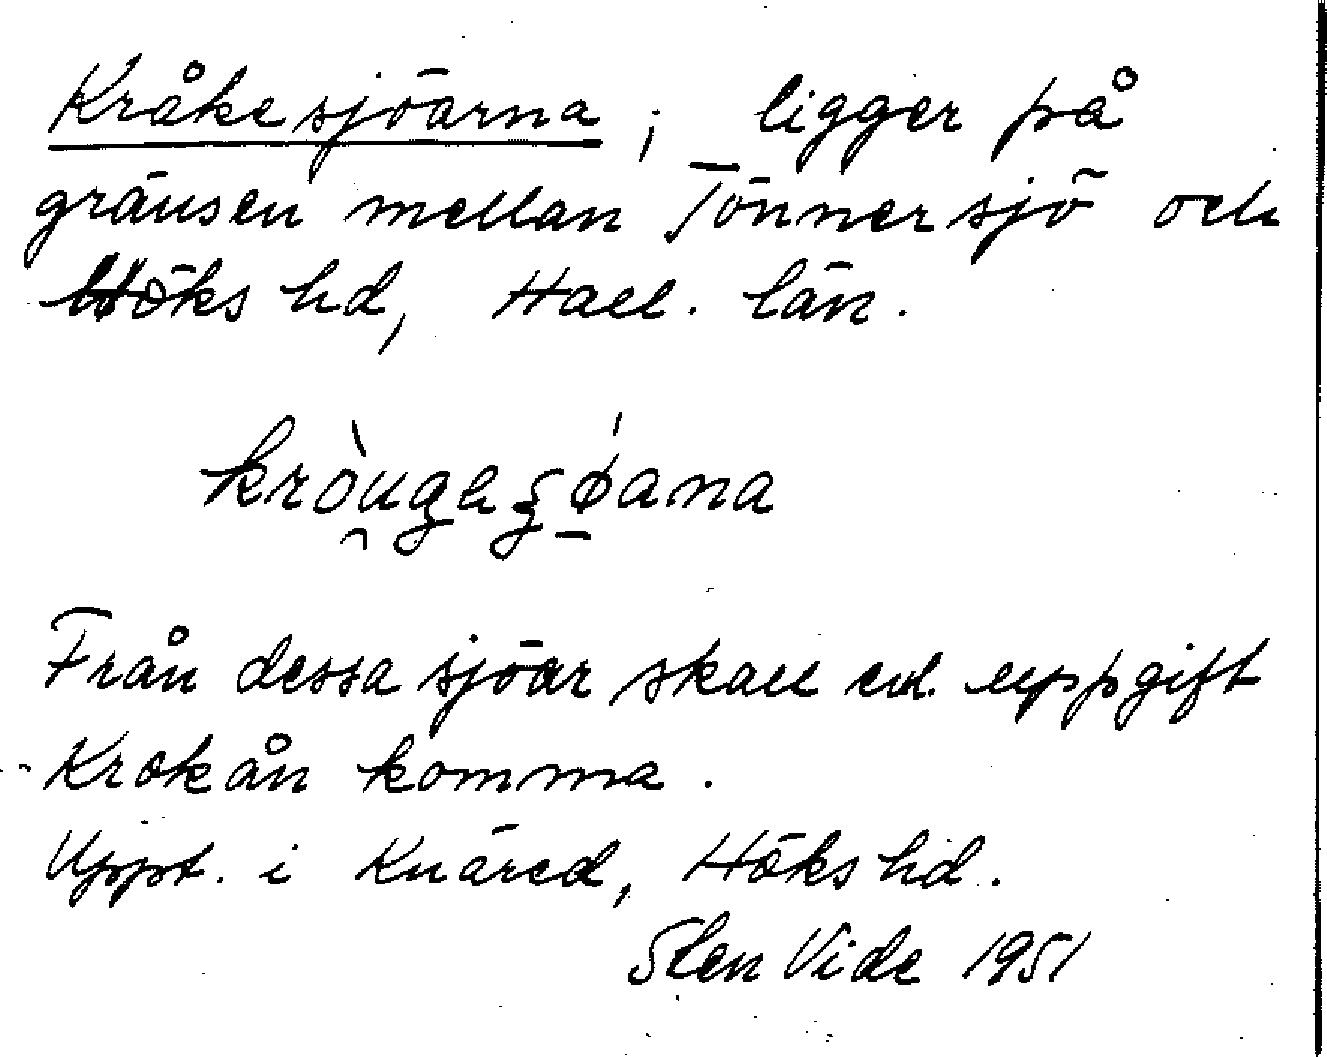 Kråkesjöarna; ligger på
gränsen mellan Tönnersjö och
Höks hd, Hall. län.
kròu̯gaʂǿ̱ana
Från dessa sjöar skall enl. uppgift
Krokån komma.
Uppt. i Knäred, Höks hd.
Sten Vide 1951